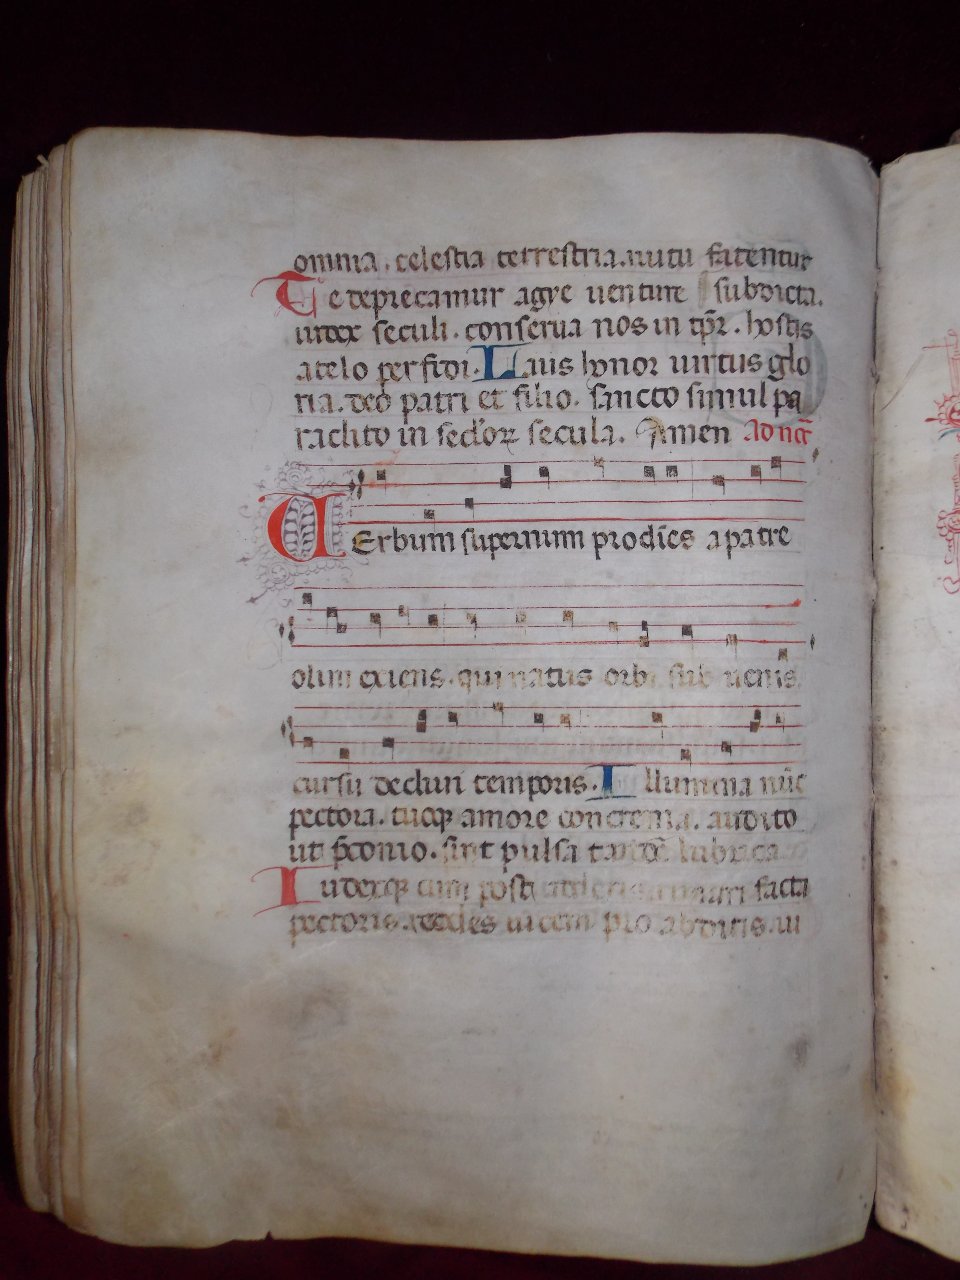 omnia. celestia terrestria. nutu fatentur
Te deprecamur agye uenture subdicta.
iudex seculi. conserua nos in tp̄r. hostis
a telo perfidi. Laus honor uirtus glo
ria. deo patri et filio. sancto simul pa
raclito in seclorꝝ secula. Amen Ad noc̄t
Uerbum supernum prodiēs a patre
olim exiens. qui natus orbi sub uenis
cursu decliui temporis. Illumina nūc
pectora. tuoqꝫ amore concrema. audito
ut p̄conio. sint pulsa tandē lubrica
Iudexqꝫ cum post facta
pectoris. reddes uicem pro abditis. iu